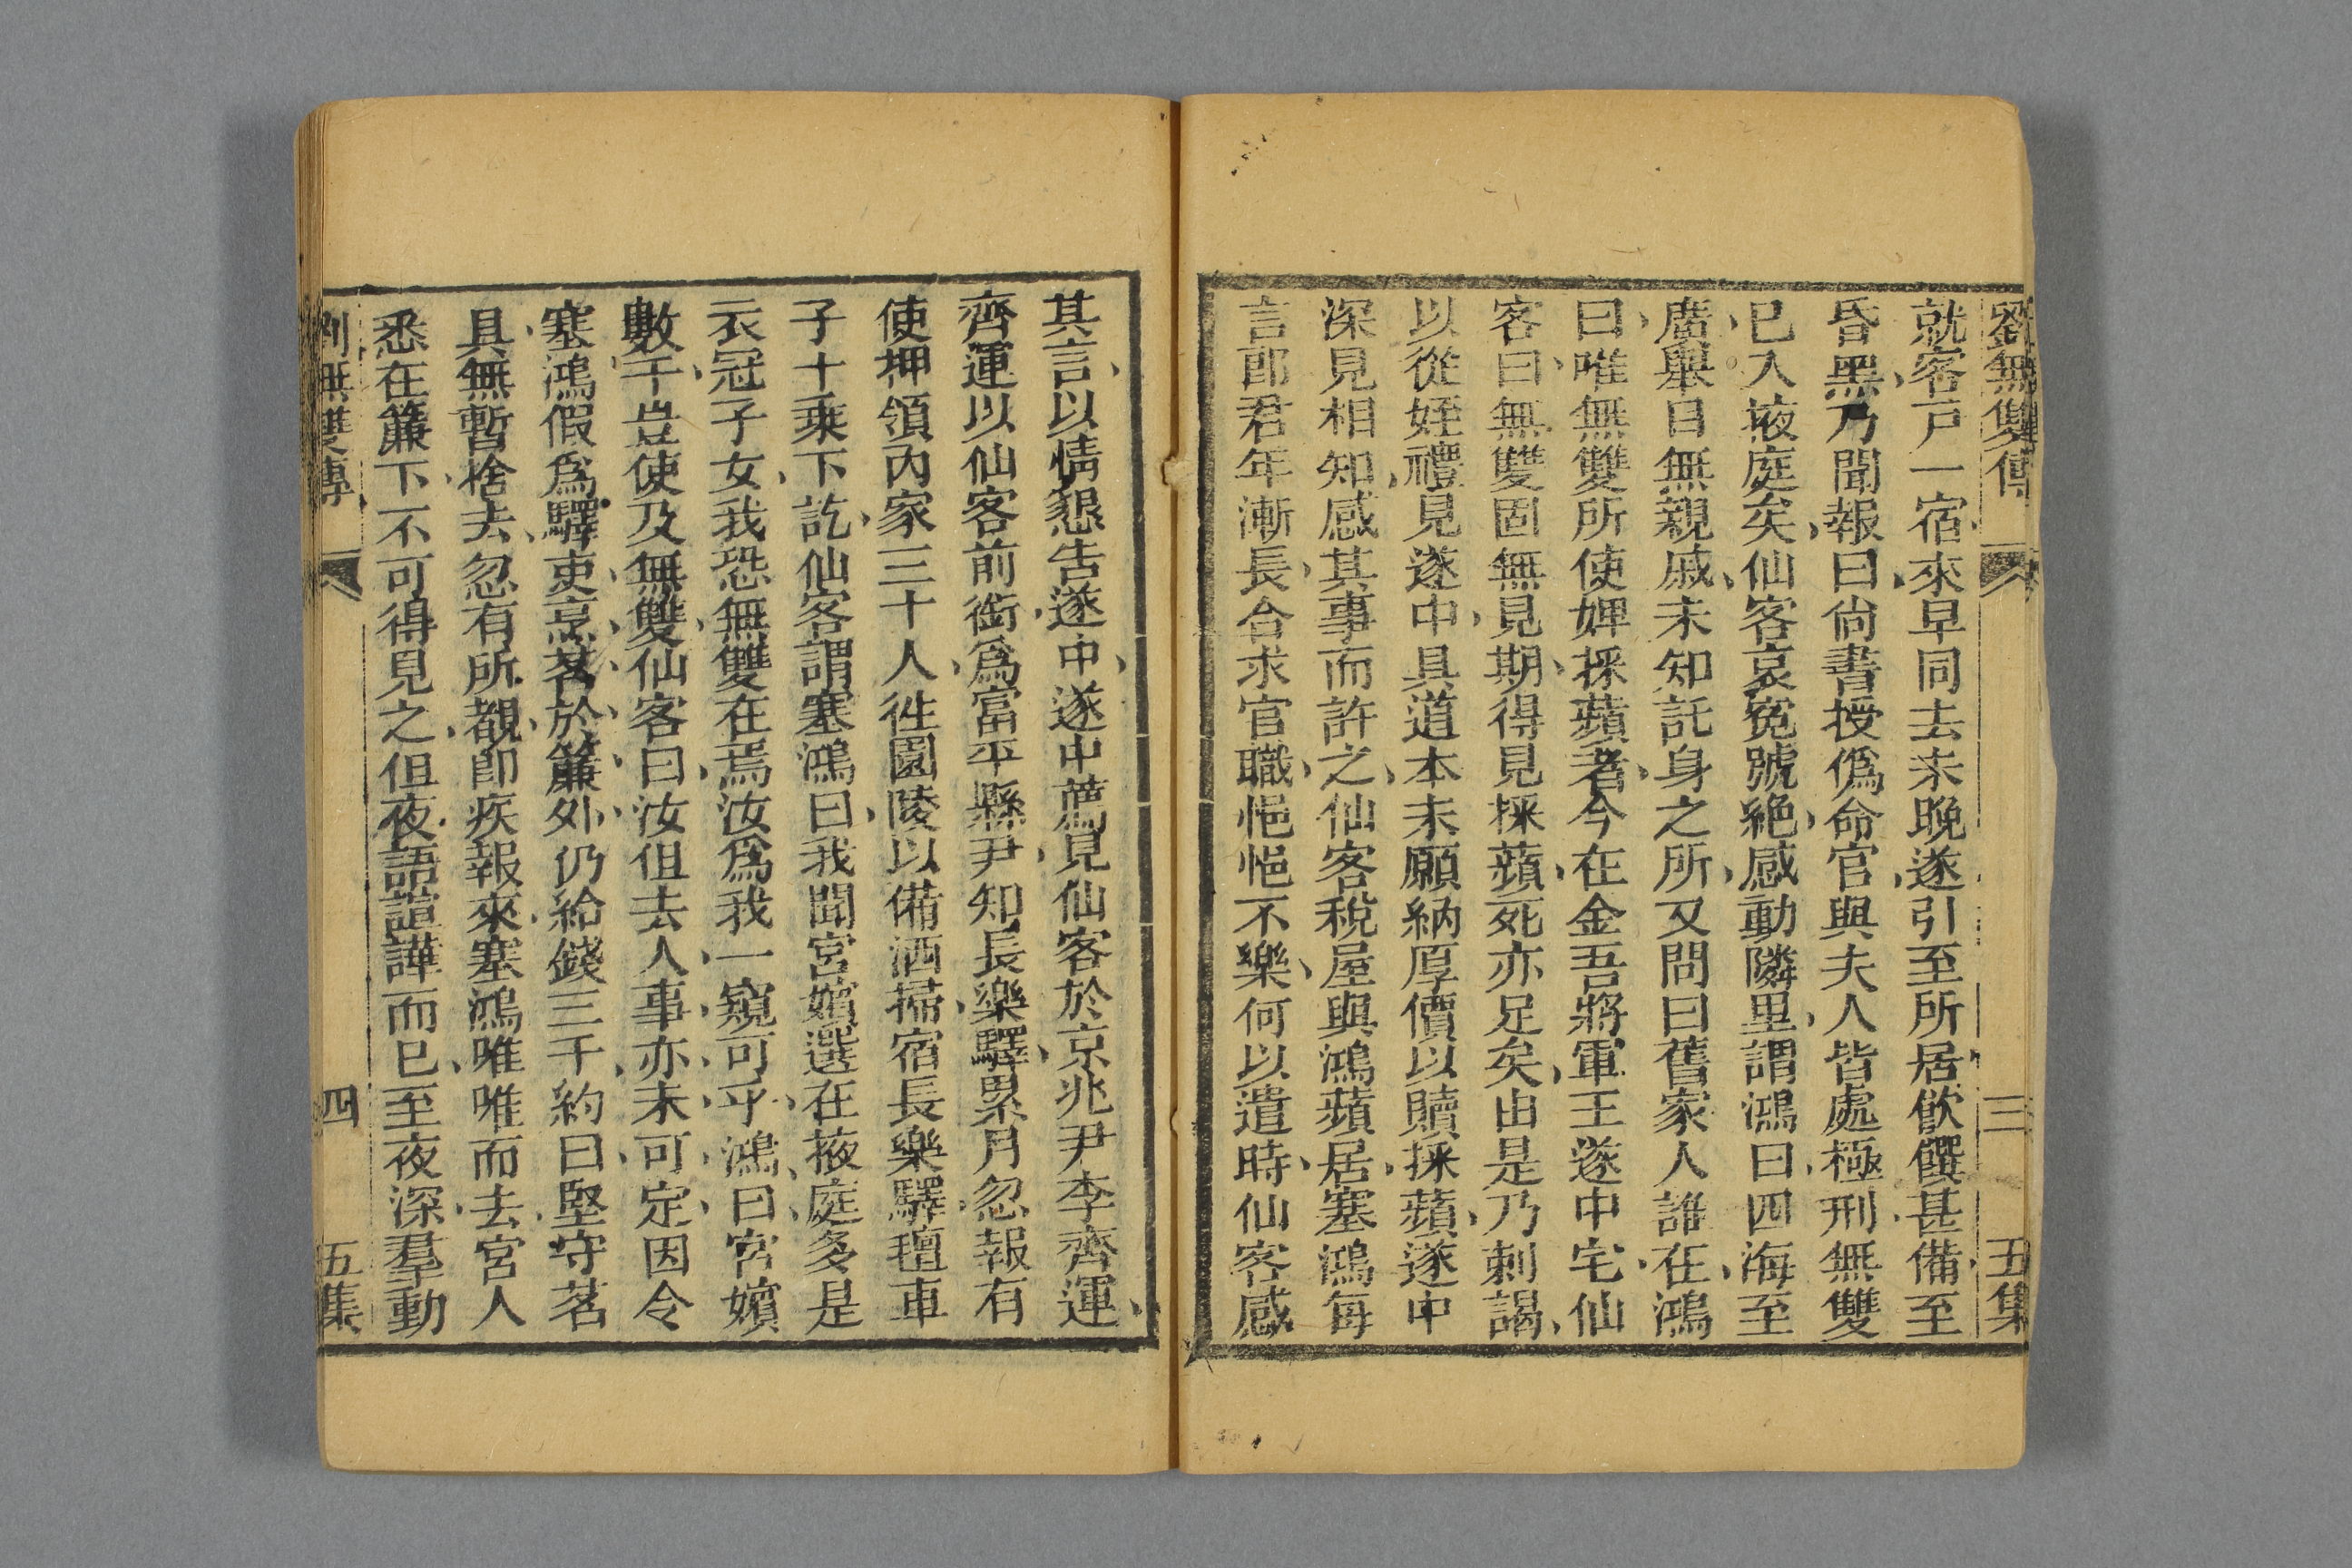 劉無雙傳 三 五集
就客戸一宿來早同去未晚遂引至所居飲饌甚備至
昏黑乃聞報曰尙書授僞命官與夫人皆處極刑無雙
已入掖庭矣仙客哀寃號絶感動隣里謂鴻曰四海至
廣舉目無親戚未知託身之所又問曰舊家人誰在鴻
曰唯無雙所使婢採蘋者今在金吾將軍王遂中宅仙
客曰無雙固無見期得見採蘋死亦足矣由是乃刺謁
以從姪禮見遂中具道本末願納厚價以贖採蘋遂中
深見相知感其事而許之仙客稅屋與鴻蘋居塞鴻每
言郎君年漸長合求官職悒悒不樂何以遣時仙客感
其言以情懇告遂中遂中薦見仙客於京兆尹李齊運
齊運以仙客前銜爲富平縣尹知長樂驛累月忽報有
使押領內家三十人徃園陵以備洒掃宿長樂驛氊車
子十乘下訖仙客謂塞鴻曰我聞宮嬪選在掖庭多是
衣冠子女我恐無雙在焉汝爲我一窺可乎鴻曰宮嬪
數千豈使及無雙仙客曰汝伹去人事亦未可定因令
塞鴻假爲驛吏烹茗於簾外仍給錢三千約曰堅守茗
具無暫捨去忽有所覩卽疾報來塞鴻唯唯而去宮人
悉在簾下不可得見之伹夜語諠譁而已至夜深羣動
劉無雙傳 四 五集